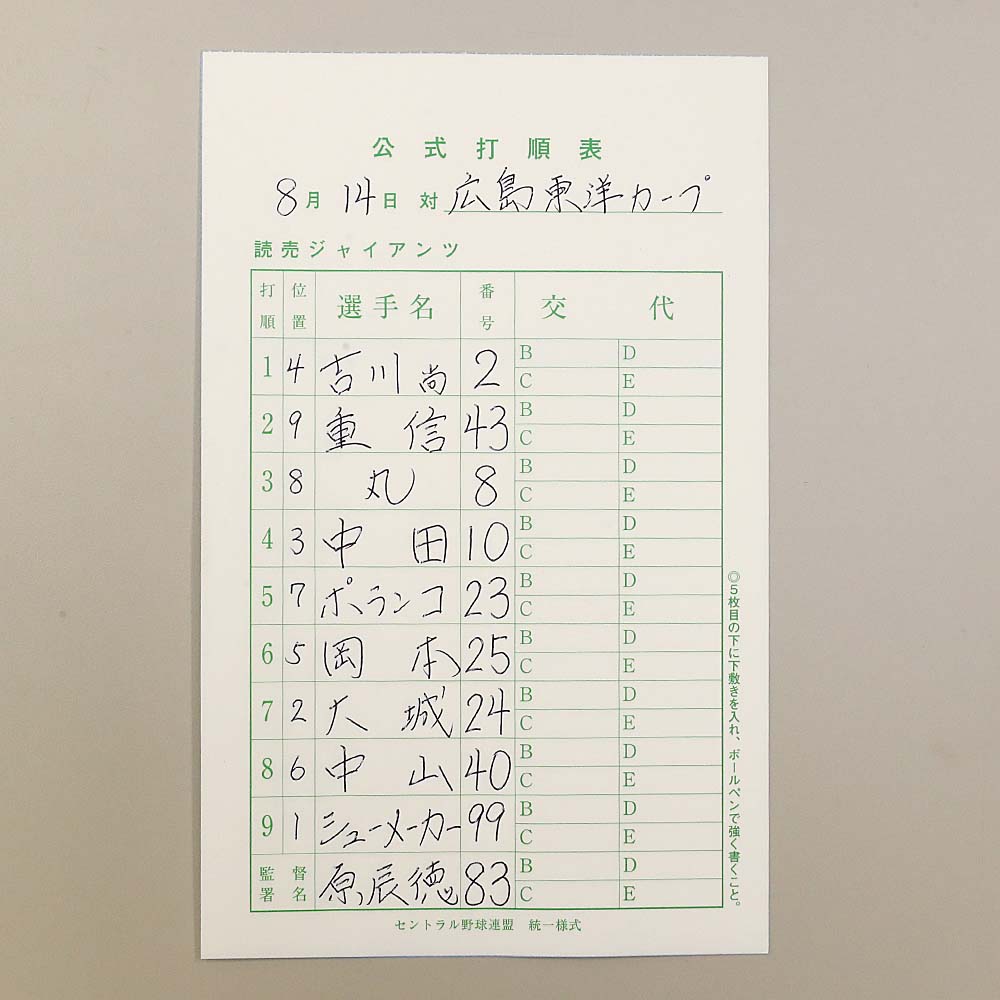 公式打順表
8月14日 対 広島東洋カープ
読売ジャイアンツ
打順 位置 選手名 番号 交代
1 4 吉川尚 2 B D
C E
2 9 重信 43 B D
C E
3 8 丸 8 B D
C E
4 3 中田 10 B D
C E
5 7 ポランコ 23 B D
C E
6 5 岡本 25 B D
C E
7 2 大城 24 B D
C E
8 6 中山 40 B D
C E
9 1 シューメーカー 99 B D
C E
監督署名 原辰徳 83 B D
C E
◎5枚目の下に下敷きを入れ、ボールペンで強く書くこと。
セントラル野球連盟 統一様式